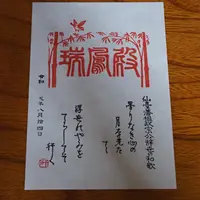 瑞鳳殿
仙臺藩祖政宗公辞世の和歌
曇りなき心の
月を先た
てゝ
浮世のやみを
てらしてそ
行く
令和
年八月十四日